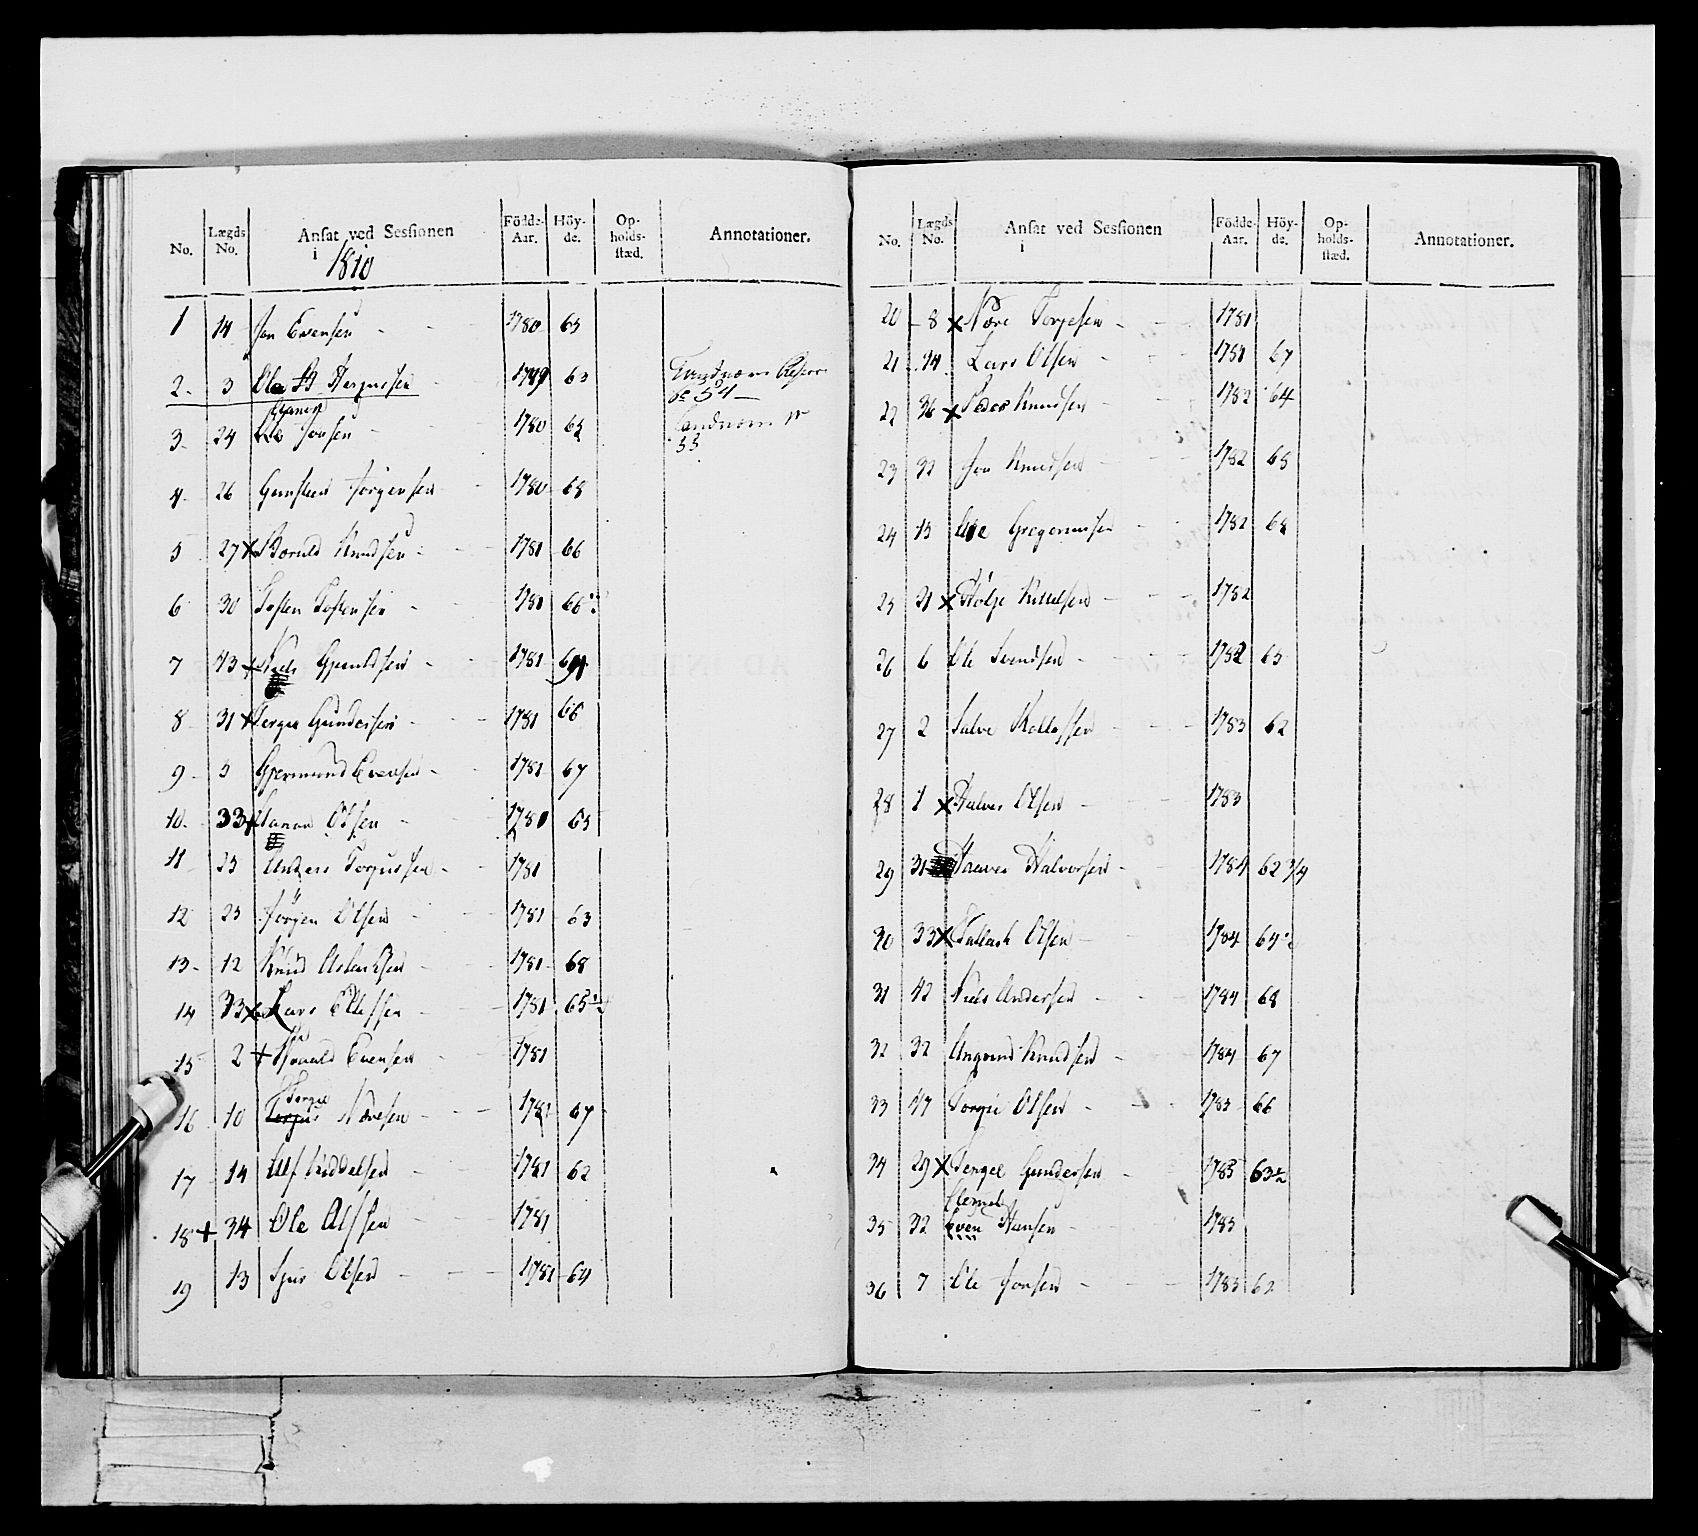 No. Lægds No. Ansat ved Sessionen i 1810 Födde-Aar. Höy-de. Op-holds-stæd. Annotationer.
1 14 Jon Evensen 1780 65
2 3 Ole Tergussen 1779 63 Landværns 54
3 24 Jonsen 1780 65 Landværn 53
4 26 Gunsteen Jörgensen 1780 68
5 27 x Boruld Knudsen 1781 66
6 30 Tosten Tostensen 1781 66
7 43 + Niels Gjeruldsen 1781
8 31 + Terger Gundersen 1781 66
9 5 Gjermund Evensen 1781 67
10 33 + Olsen 1780 65
11 25 Anders Torgussen 1781
12 25 Jörgen Olsen 1781 63
13 12 Knud Aslachsen 1781 68
14 33 x Lars Ellefsen 1781 65
15 2 + Evensen 1781
16 10 Torgie Næresen 1781 67
17 14 Ulf Kiddelsen 1781 62
18 + 34 Ole Olssen 1781
19 13 Sjur Olsen 1781 64
No. Lægds No. Ansat ved Sessionen i Födde-Aar. Höy-de. Op-holds-stæd. Annotationer.
20 8 x Nære Torjesen 1781
21 14 Lars Olsen 1781 67
22 36 x Peder Knudsen 1782 64
23 32 Jon Knudsen 1782 65
24 13 Ole Gregersen 1782 68
25 21 x Kittelsen 1782
26 6 Ole Svendsen 1782 65
27 2 Salve 1783 62
28 1 x Halvor Olsen 1783
29 31 Halvorsen 1784 62 3/4
30 33 x Tallach Olsen 1784 64
31 42 Niels Andersen 1784 68
32 32 Angvend Knudsen 1784 67
33 47 Torgie Olsen 1783 66
34 29 x Tengel Gundersen 1785 63½
35 32 Clemet Even Hansen 1783
36 7 Ole Jonsen 1783 62